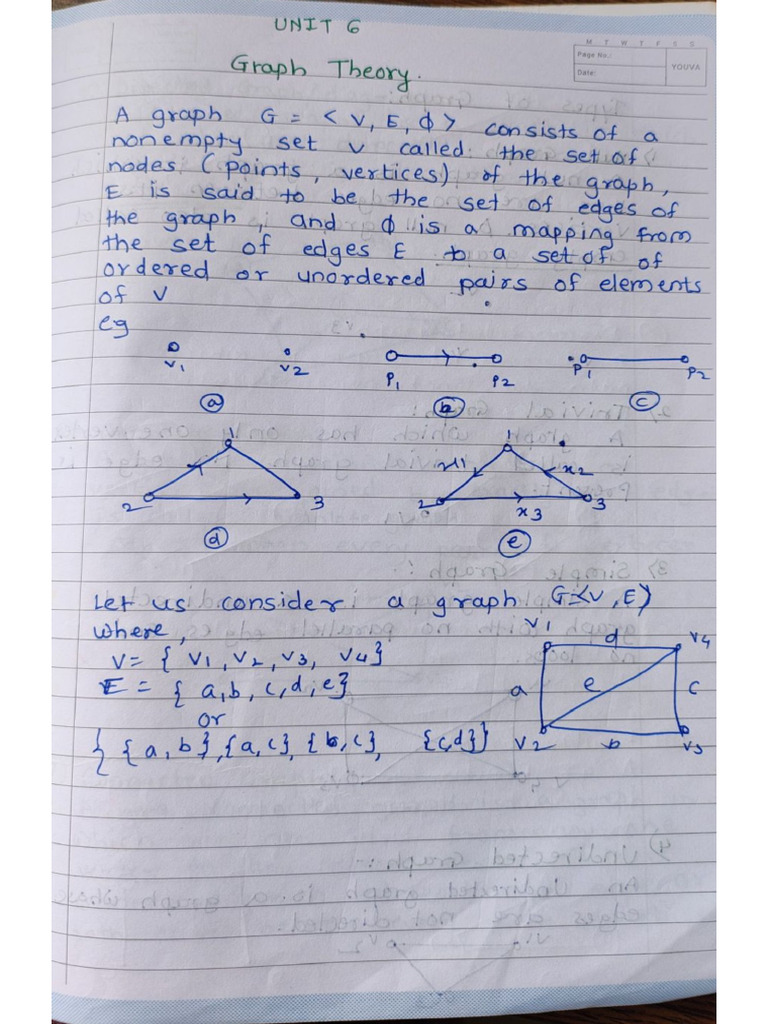 UNIT 6
M T W T F S S
Page No.:
Date:
YOUVA
Graph Theory.
A graph G = < V, E, ϕ> consists of a
nonempty set V called the set of
nodes (points, vertices) of the graph,
E is said to be the set of edges of
the graph, and ϕ is a mapping from
the set of edges E to a set of of
ordered or unordered pairs of elements
of V
eg
V1 V2 P1 P2 P1 P2
(a) (b) (c)
1 1
x1 x2
2 3 2 x3 3
(d) (e)
Let us consider a graph G=<V, E>
where,
V = { V1, V2, V3, V4}
E = { a, b, c, d, e}
or
{ {a, b}, {a, c}, {b, c}, {c,d}}
V1 d V4
a e c
V2 b V3